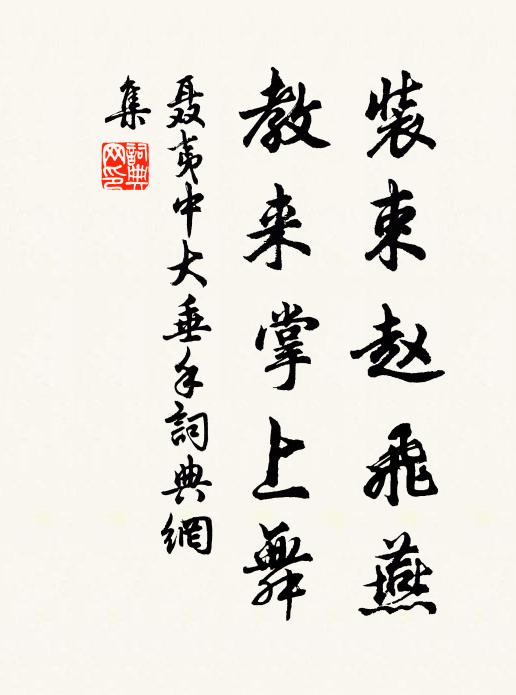 装束赵飛燕
教来掌上舞
聂夷中大垂手詞典網
集
詞典
网印